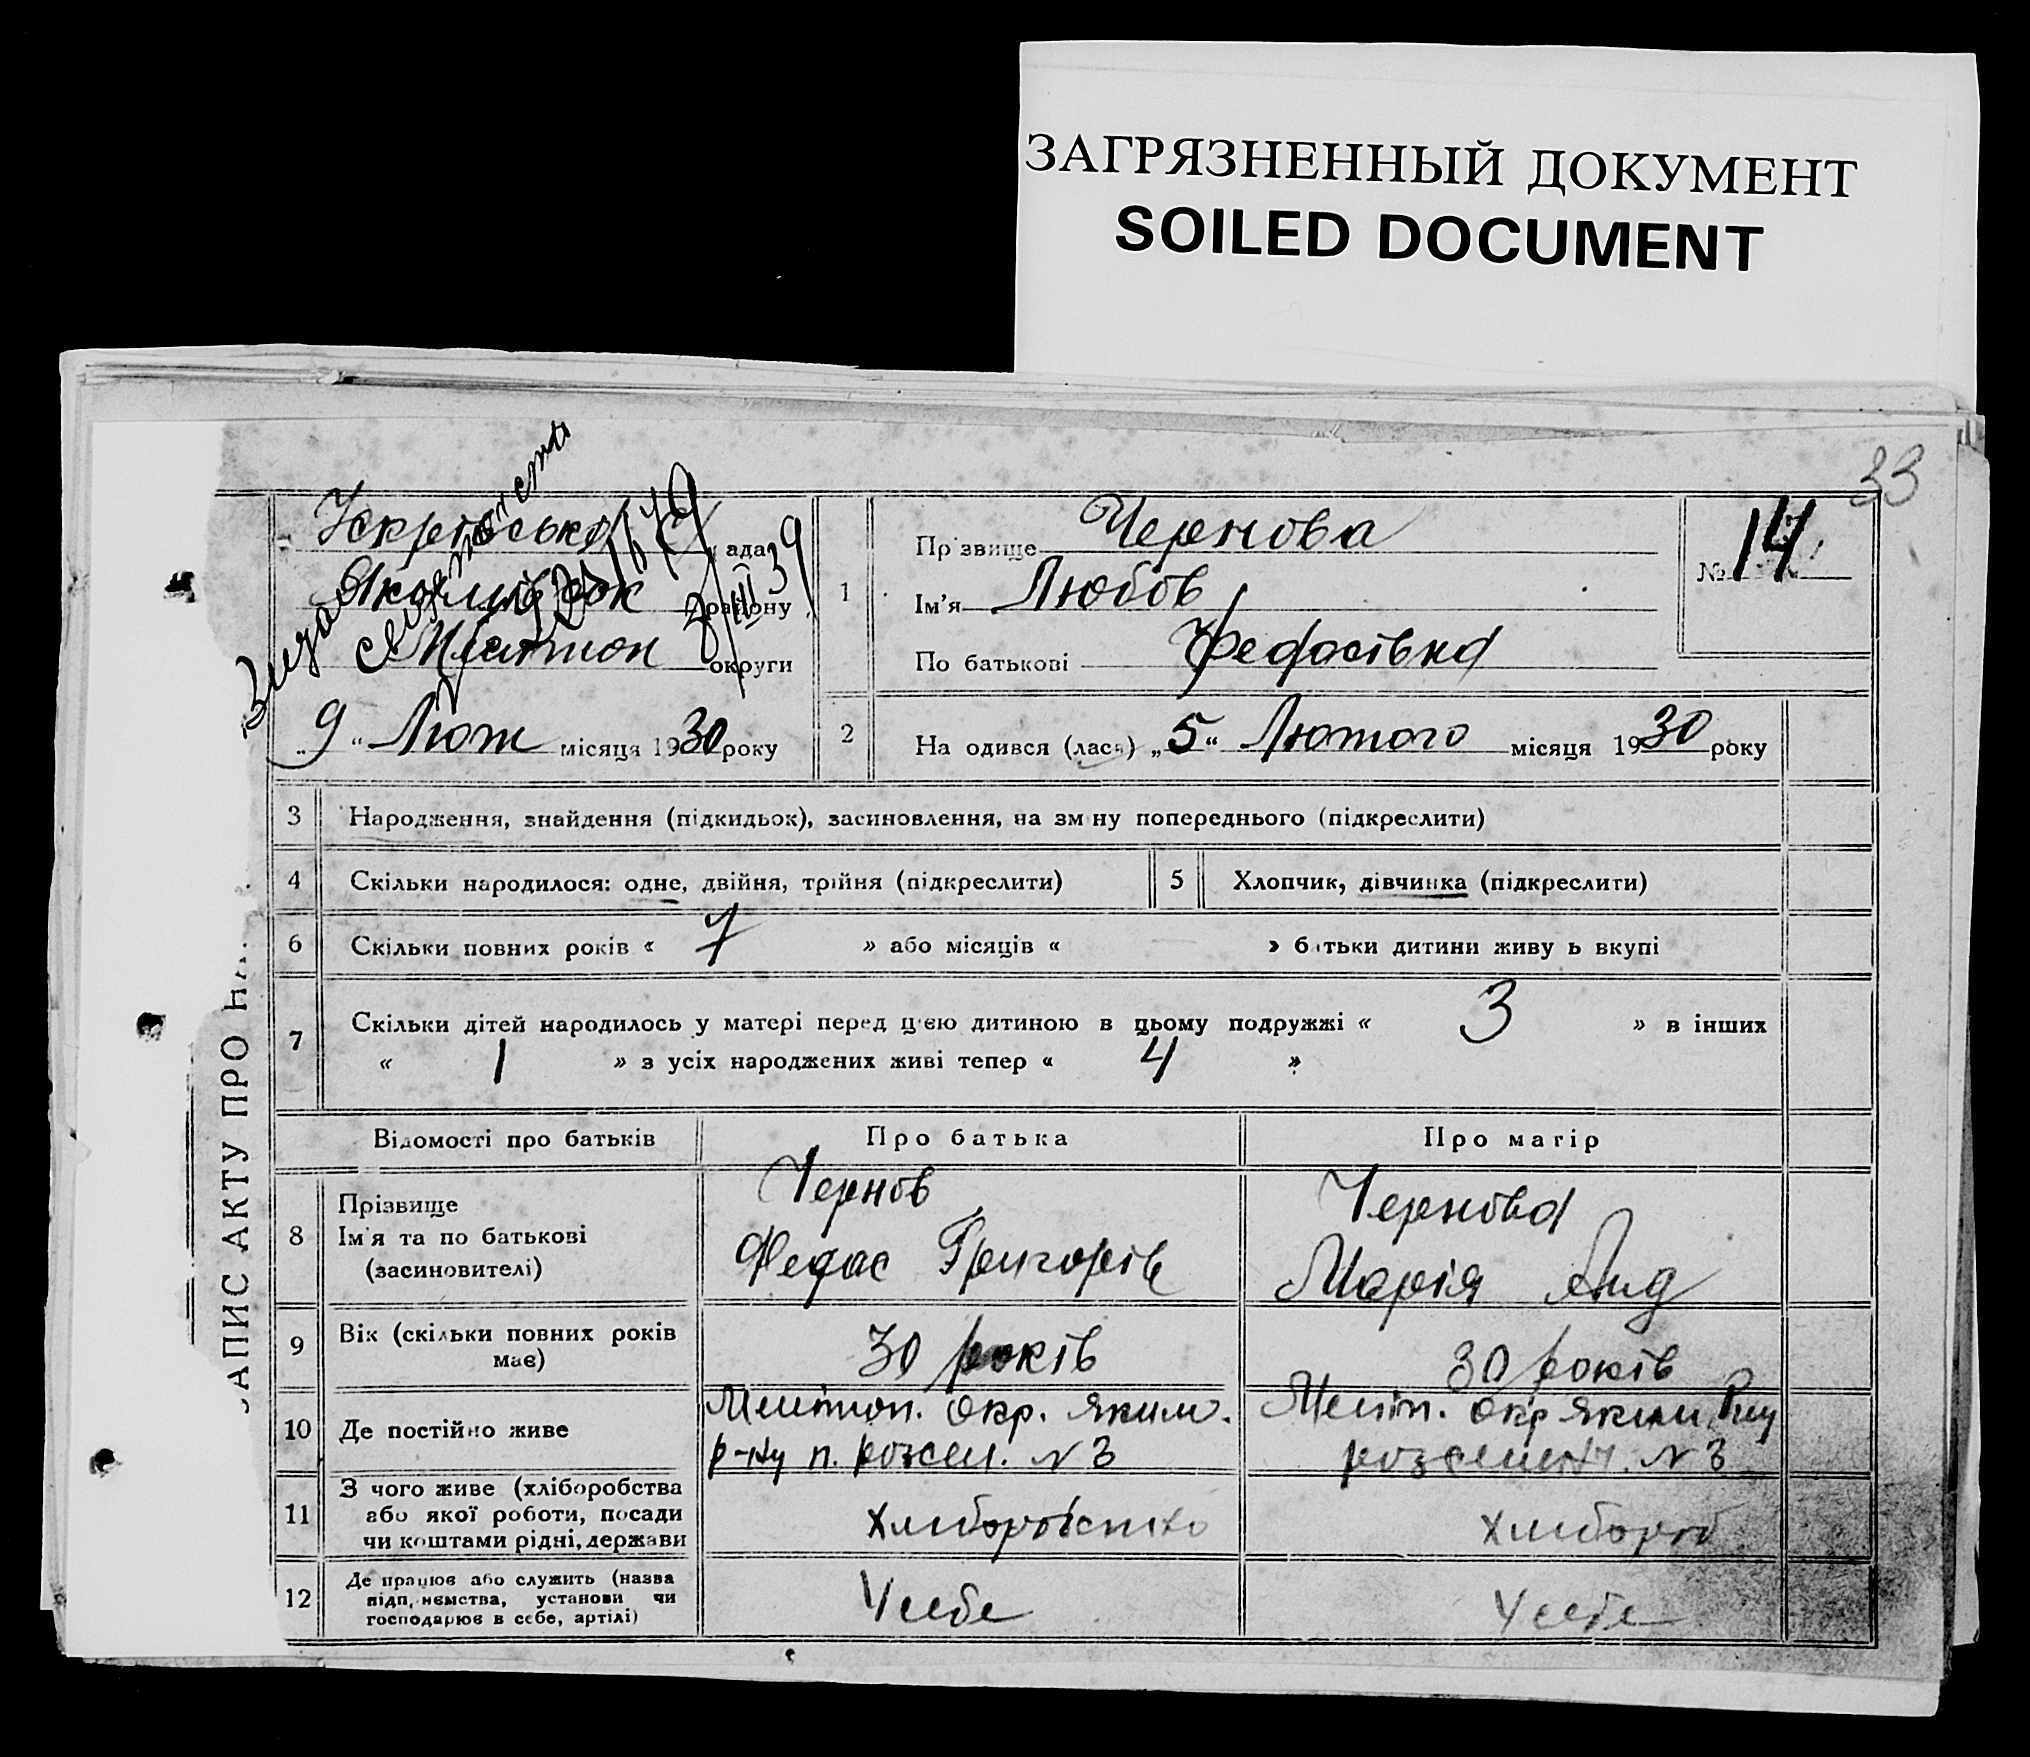 ЗАГРЯЗНЕННЫЙ ДОКУМЕНТ
SOILED DOCUMENT
33
ада
району
Мелітоп округи
„9“ Лют місяця 1930 року
8/III 39
1
Прізвище Чернова
Ім'я Любов
По батькові Федосівна
№ 14
2
На одився (лась) „5“ Лютого місяця 1930 року
ЗАПИС АКТУ ПРО НА
3 Народження, знайдення (підкидьок), засиновлення, на зм ну попереднього (підкреслити)
4 Скільки народилося: одне, двійня, трійня (підкреслити)
5 Хлопчик, дівчинка (підкреслити)
6 Скільки повних років « 7 » або місяців « » батьки дитини живу ь вкупі
7 Скільки дітей народилось у матері перед цією дитиною в цьому подружжі « 3 » в інших
« 1 » з усіх народжених живі тепер « 4 »
Відомості про батьків
Про батька
Про матір
8
Прізвище
Ім'я та по батькові
(засиновителі)
Чернов
Федос Григорів
Чернова
Марія Анд
9
Вік (скільки повних років
має)
30 років
30 років
10 Де постійно живе
Мелітоп. окр. Яким.
р-ну п. розсел. № 3
Меліт. окр Яким. Р-ну
розселен. № 3
11
З чого живе (хліборобства
або якої роботи, посади
чи коштами рідні, держави
Хліборобство
Хлібороб
12
Де працює або служить (назва
підп, иємства, установи чи
господарює в себе, артілі)
У себе
У себе